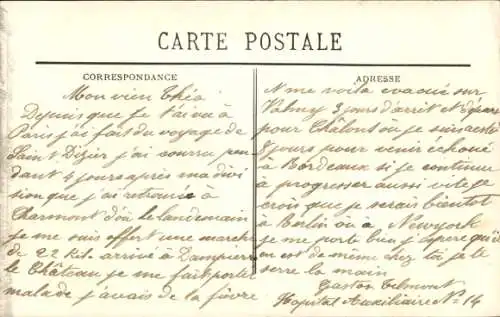 CARTE POSTALE
CORRESPONDANCE
Mon vieux Théa
Depuis que je t'ai vu à
Paris j'ai fait du voyage de
Saint Dizier j'ai couru pen
dant 4 jours après ma divi
sion que j'ai retrouvée à
Charmont d'où le lendemain
je me suis offert une marche
de 22 Kil. arrivé à Dampierre
le Château je me fait porter
malade j'avais de la fièvre
ADRESSE
me voila evacué sur
Valmy 3 jours d'arret
pour Châlons où je suis resté
8 jours pour venir echoué
à Bordeaux si je continue
à progresser aussi vite je
crois que je serais bientot
à Berlin où à Newyork
je me porte bien j'espere qu'il
en est de même chez toi je te
serre la main
Gaston
Hopital Auxiliaire No 14